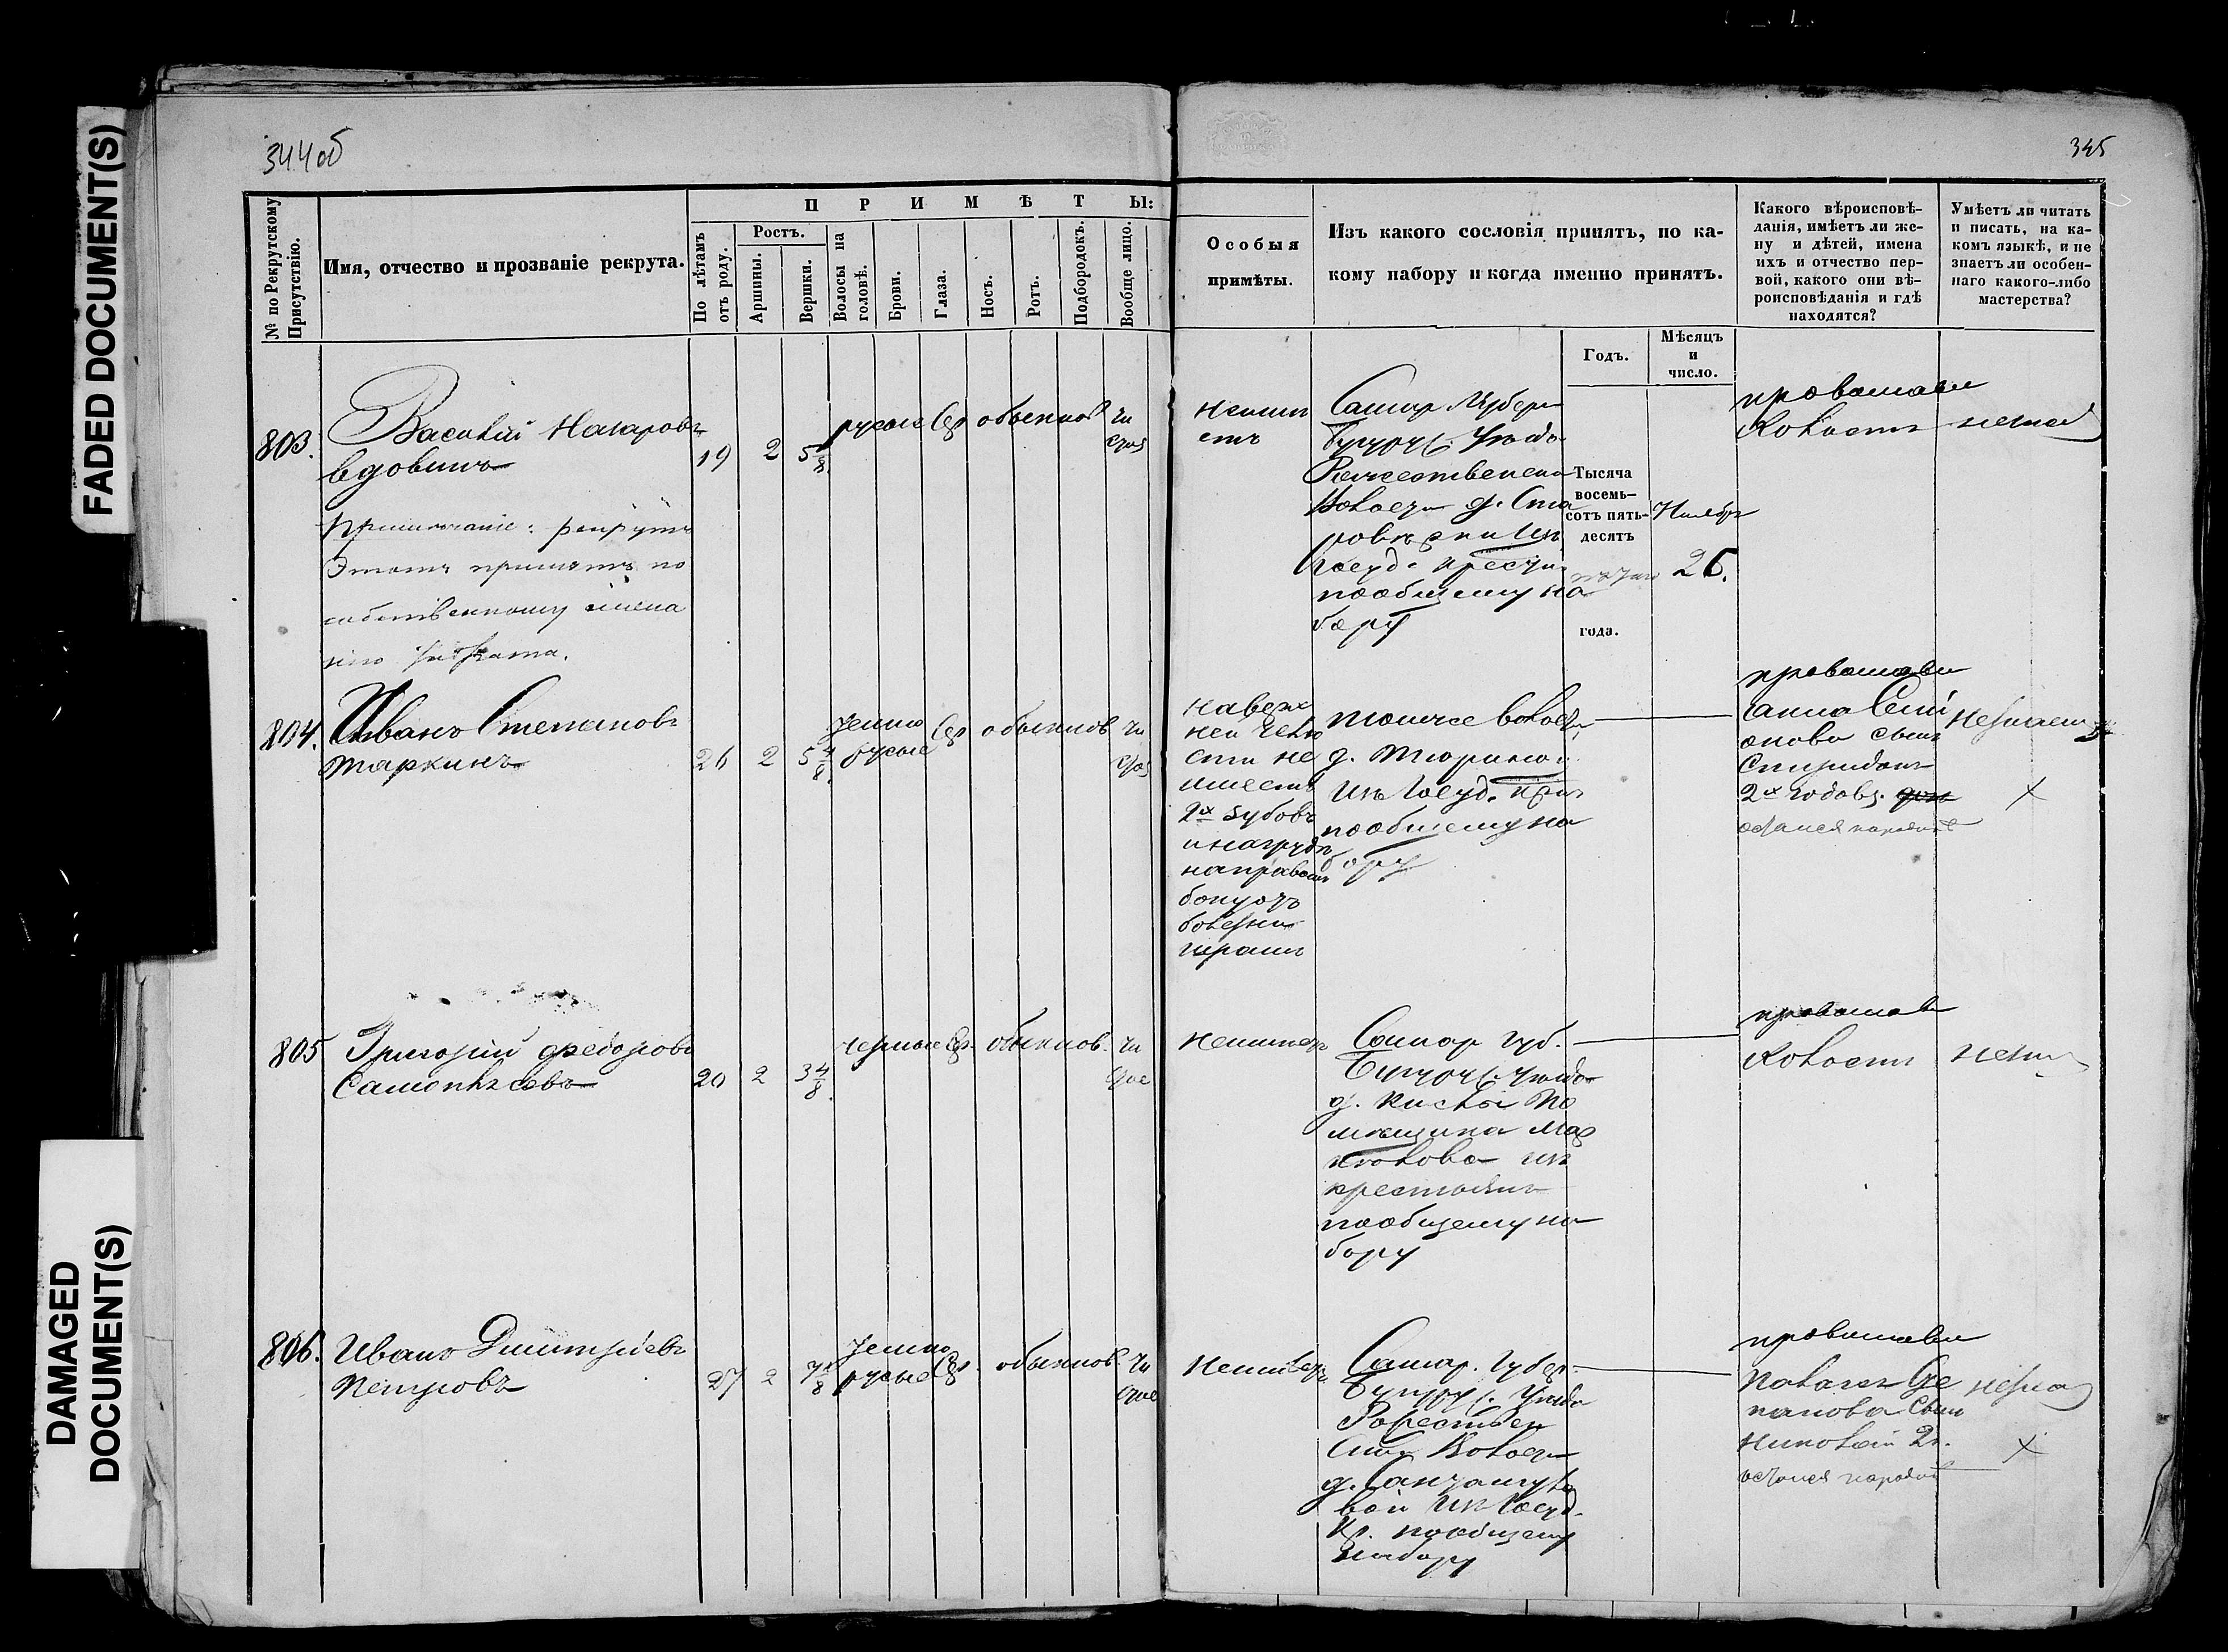 FADED DOCUMENT(S)
DAMAGED
DOCUMENT(S)
344 об
345
№ по Рекрутскому
Присутствію.
Имя, отчество и прозваніе рекрута.
ПРИМѢТЫ:
По лѣтамъ
отъ роду.
Ростъ.
Аршины.
Вершки.
Волосы на
головѣ.
Брови.
Глаза.
Носъ.
Ротъ.
Подбородокъ.
Вообще лицо.
Особыя
примѣты.
Изъ какого сословія принятъ, по ка-
кому набору и когда именно принятъ.
Годъ.
Мѣсяцъ
и
число.
Какого вѣроисповѣ-
данія, имѣетъ ли же-
ну и дѣтей, имена
ихъ и отчество пер-
вой, какого они вѣ-
роисповѣданія и гдѣ
находятся?
Умѣетъ ли читать
и писать, на ка-
комъ языкѣ, и не
знаетъ ли особен-
наго какого-либо
мастерства?
803.
Василій Назаровъ
Вдовинъ
19 2 5 1/8
русые Сер обыкнов чи
стое
Примѣчаніе: рекрутъ
Этотъ принятъ по
собственному жела
нію
Самар Губер
Бугурус. Уезда
Рожественской
Волости д.
Госуд. крестьян
по общему на
бору
Тысяча
восемь-
сотъ пять-
десятъ
года.
Ноября
26.
православн
холостъ
804.
Иванъ Степановъ
Таркинъ
26 2 5 4/8
Темно
русые Сер обыкнов чи
стое
на верх
ней челю
сти не
имеетъ
2х зубовъ
и на груди
на правомъ
боку отъ
болезни
шрамъ
той же волости
д.
изъ Госуд. крес
по общему на
бору
православн
Анна Семи
онова сынъ
Спиридонъ
2х годовъ.
остался на родине
незнаетъ
×
805
Григорій Федоровъ
Самопѣевъ
20 2 3 4/8
черные Сер обыкнов. чи
стое
неимеетъ
Самар Губ.
Бугурус. Уезда
д. Кислой По
мѣщика
изъ
крестьянъ
по общему на
бору
православ
холостъ
806.
Иванъ Дмитріевъ
Петровъ
27 2 7 1/8
Темно
русые Сер. обыкнов чи
стое
Самар. Губер.
Бугурус. Уезда
Рожествен
Волости
д.
изъ Госуд.
Кр. по общему
набору
православн
Сте
панова Сынъ
Николай 2 г.
остался на родине
×